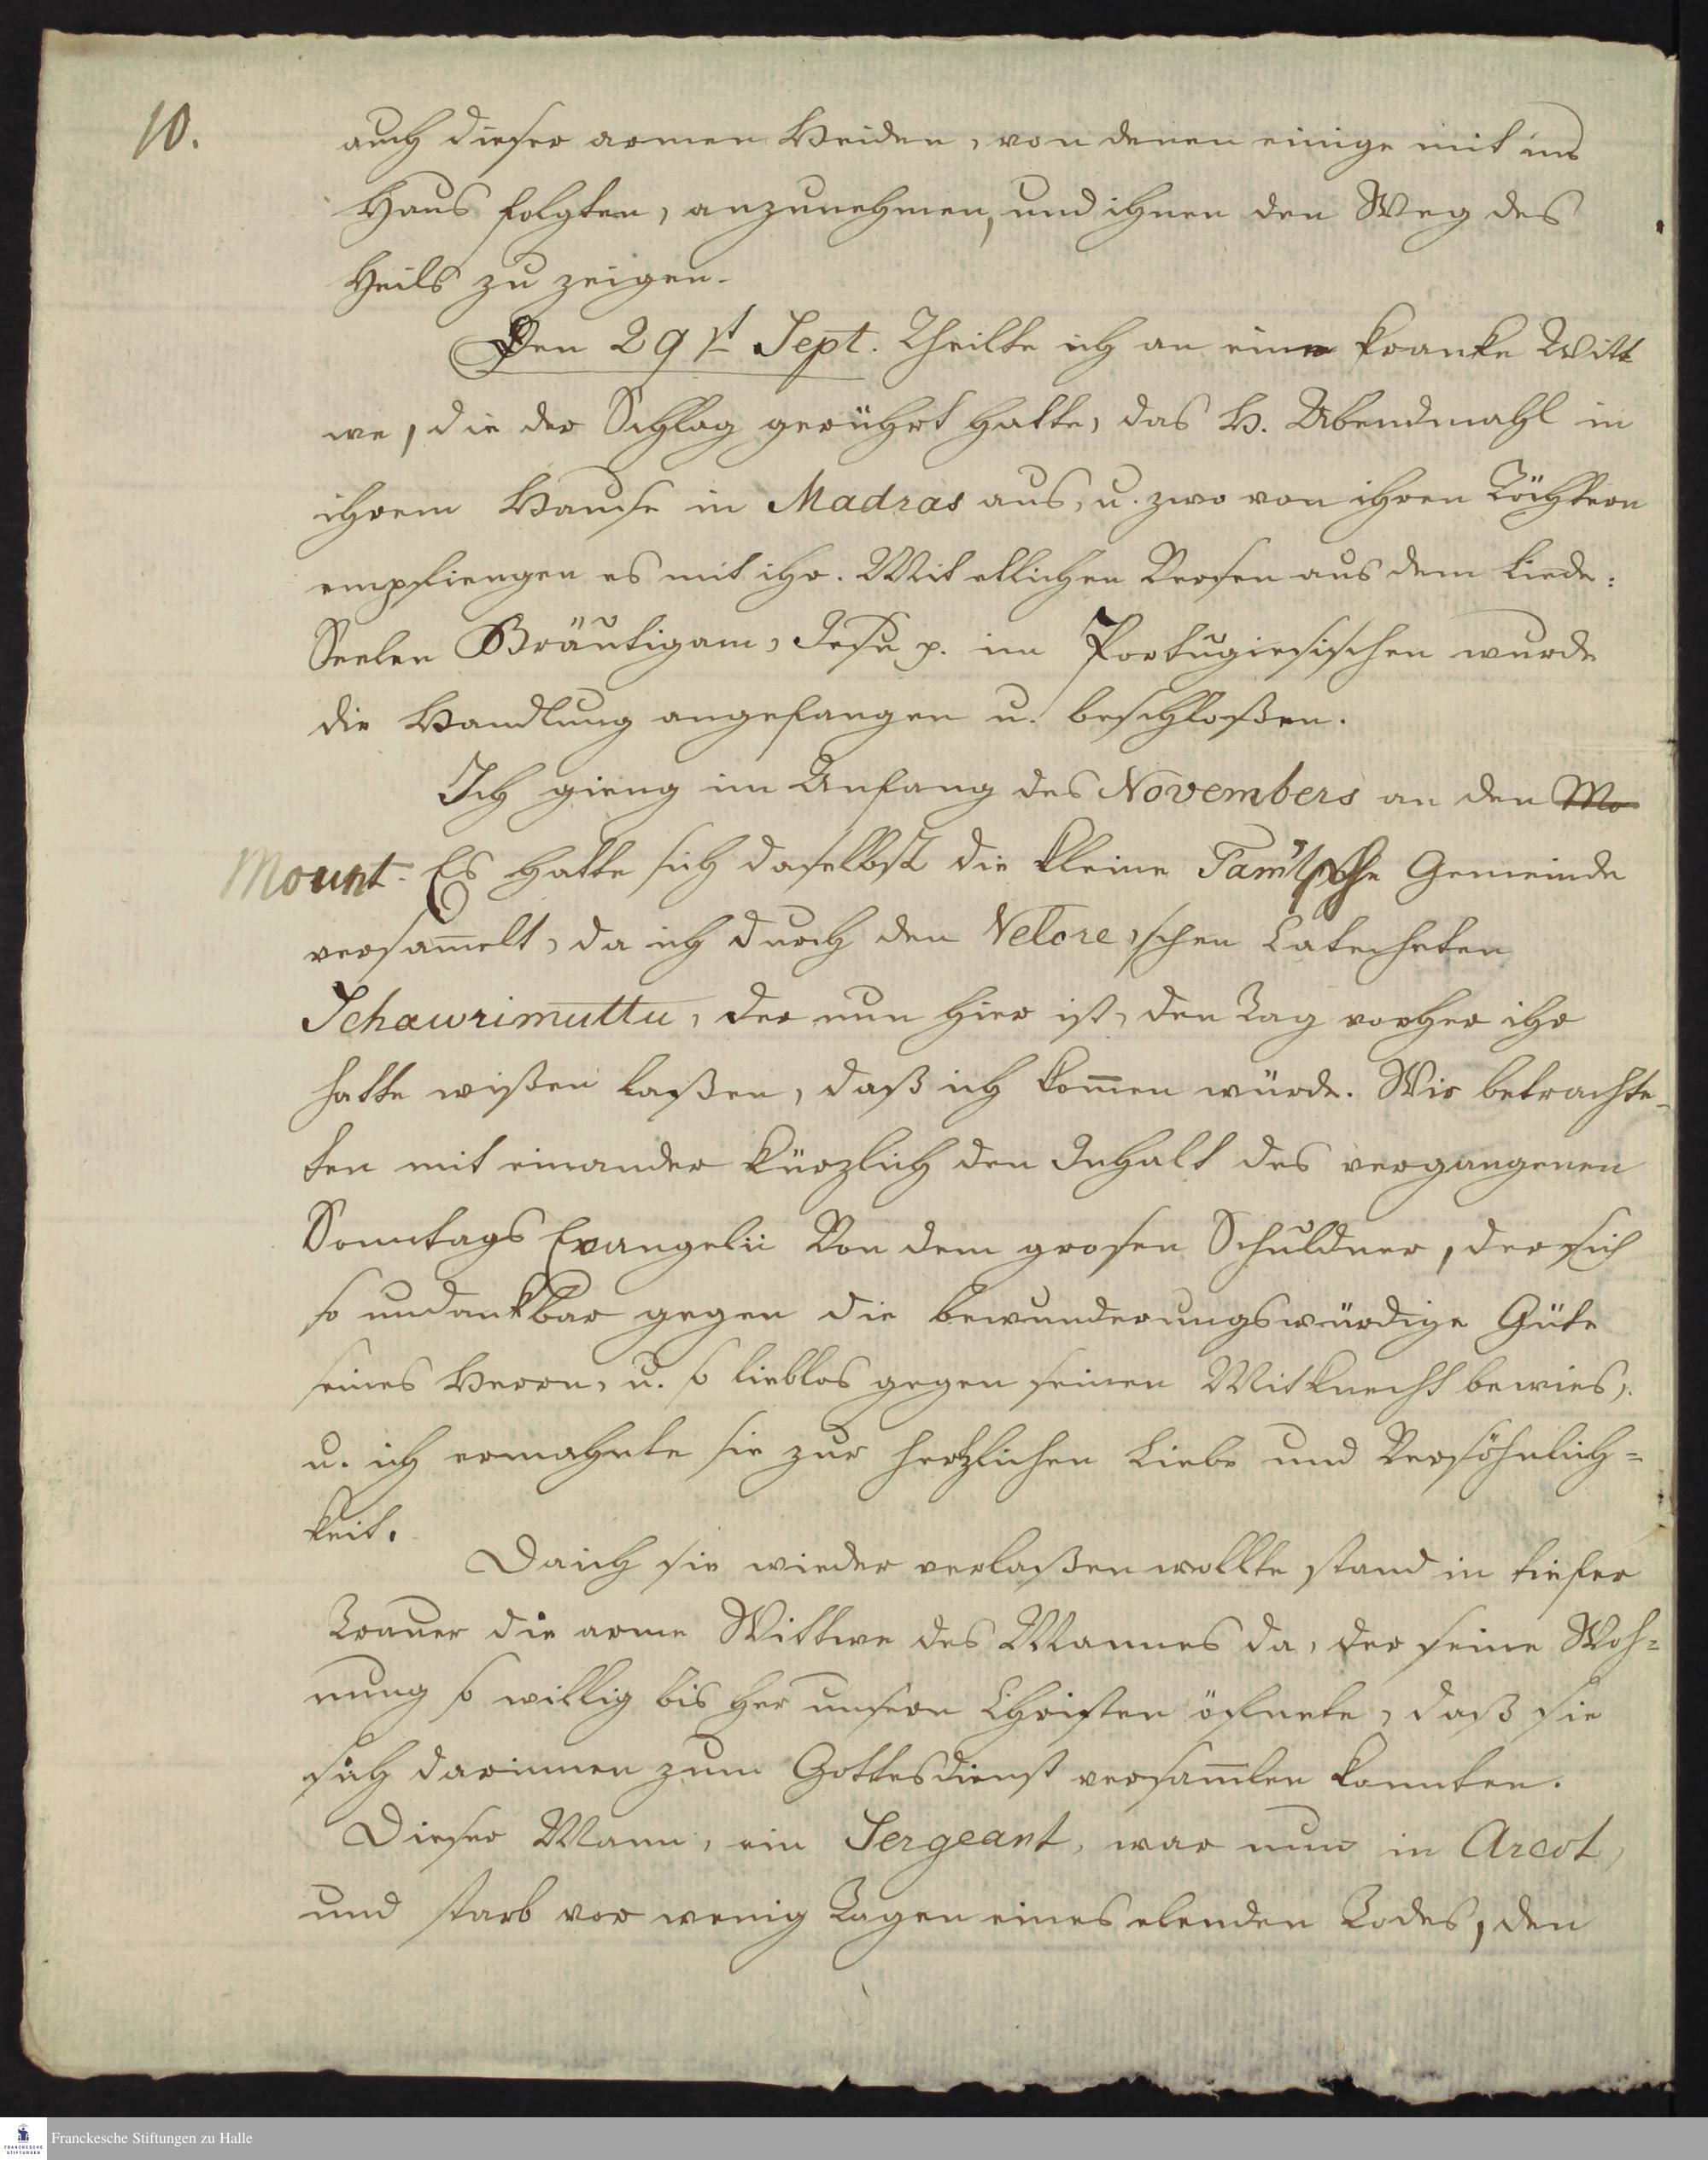 10.
auch dieser armen Heiden, von denen einige mit ins
Haus folgten, anzunehmen, und ihnen den Weg des
Heils zu zeigen.
Den 29st Sept. Theilte ich an eine kranke Witt
we, die der Schlag gerührt hatte, das H. Abendmahl in
ihrem Hause in Madras aus, u. zwo von ihren Töchtern
empfiengen es mit ihr. Mit etlichen Versen aus dem Liede:
Seelen Bräutigam, Jesu p. im Portugiesischen wurde
die Handlung angefangen u. beschloßen.
Ich gieng im Anfang des Novembers an den Mo
Mount. Es hatte sich daselbst die kleine Tamulsche Gemeinde
versam̄elt, da ich durch den Velore,schen Catecheten
Schawrimuttu, der nun hier ist, den Tag vorher ihr
hatte wißen laßen, daß ich kom̄en würde. Wir betrachte-
ten mit einander kürzlich den Inhalt des vergangenen
Sonntags Evangelii Von dem grosen Schuldner, der sich
so undankbar gegen die bewunderungswürdige Güte
seines Herrn, u. so lieblos gegen seinen Mitknecht bewies,
u. ich ermahnte sie zur hertzlichen Liebe und Versöhnlich=
keit.
Da ich sie wieder verlaßen wollte stand in tiefer
Trauer die arme Wittwe des Mannes da, der seine Woh=
nung so willig bis her unsern Christen öfnete, daß sie
sich darinnen zum Gottesdienst versam̄len konnten.
Dieser Mann, ein Sergeant, war nun in Arcot,
und starb vor wenig Tagen eines elenden Todes, den
Franckesche Stiftungen zu Halle